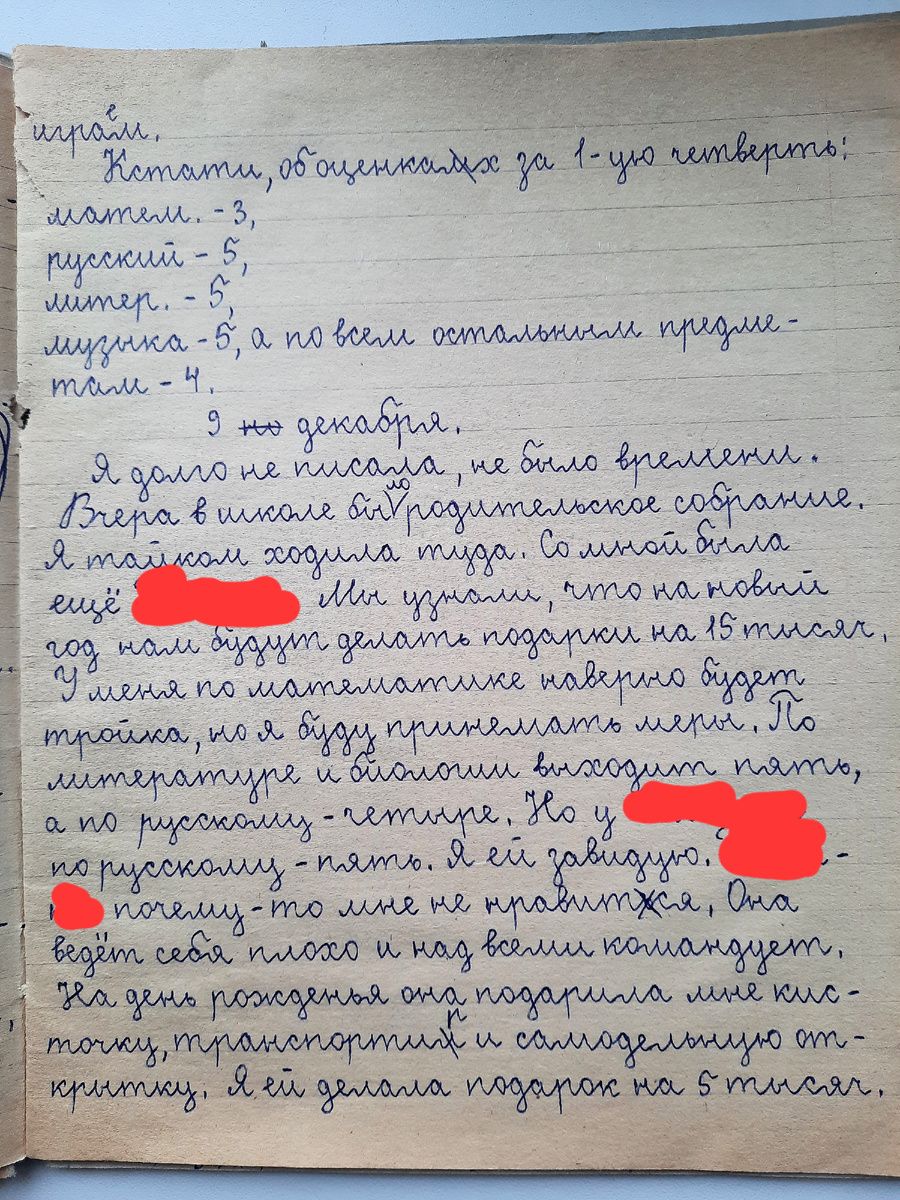 играем.
Кстати, об оценках за 1-ую четверть:
матем. - 3,
русский - 5,
литер. - 5,
музыка - 5, а по всем остальным предме-
там - 4.
9 но декабря.
Я долго не писала, не было времени.
Вчера в школе было родительское собрание.
Я тайком ходила туда. Со мной была
ещё Мы узнали, что на новый
год нам будут делать подарки на 15 тысяч.
У меня по математике наверно будет
тройка, но я буду принемать меры. По
литературе и биологии выходит пять,
а по русскому - четыре. Но у
по русскому - пять. Я ей завидую. -
почему-то мне не нравится. Она
ведёт себя плохо и над всеми командует.
На день рожденья она подарила мне кис-
точку, транспортир и самодельную от-
крытку. Я ей делала подарок на 5 тысяч.